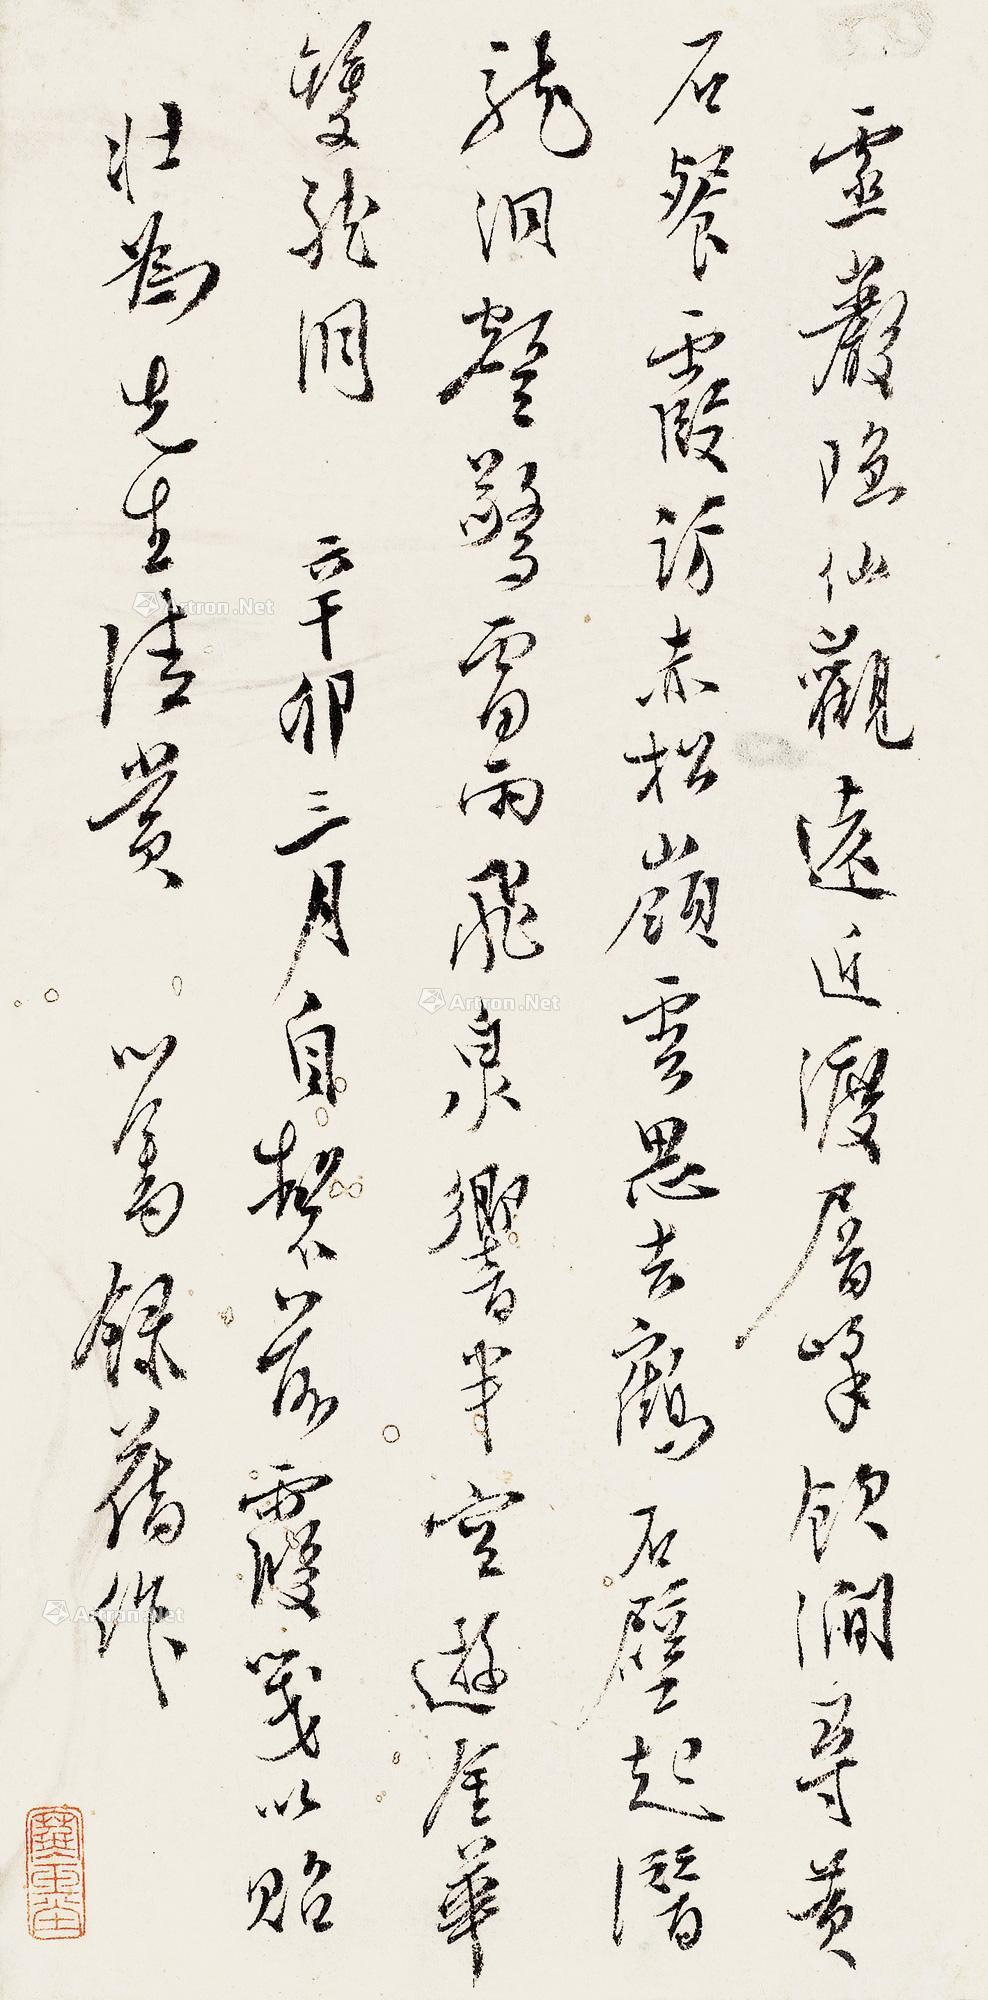 靈巖隱仙觀遠近層峰飲澗尋黃
石餐霞訪赤松嶺雲思去鶴石壁起潛
龍洞壑驚雷雨飛泉響半空遊金華
雙龍洞 辛卯三月自製落霞箋以貽
壯為先生清賞 心畬錄舊作
Artron.Net
Artron.Net
Artron.Net